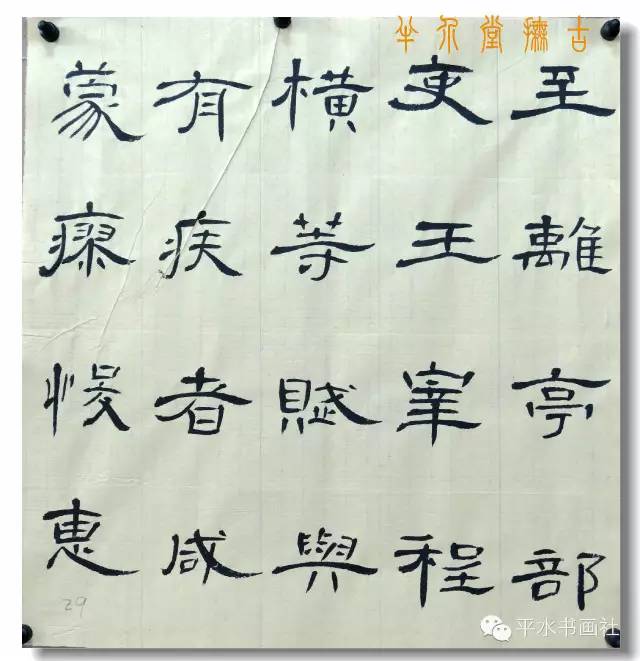 堂橅古
至離亭部
吏王皋程
橫等賦與
有疾者咸
蒙瘳悛惠
29
平水书画社